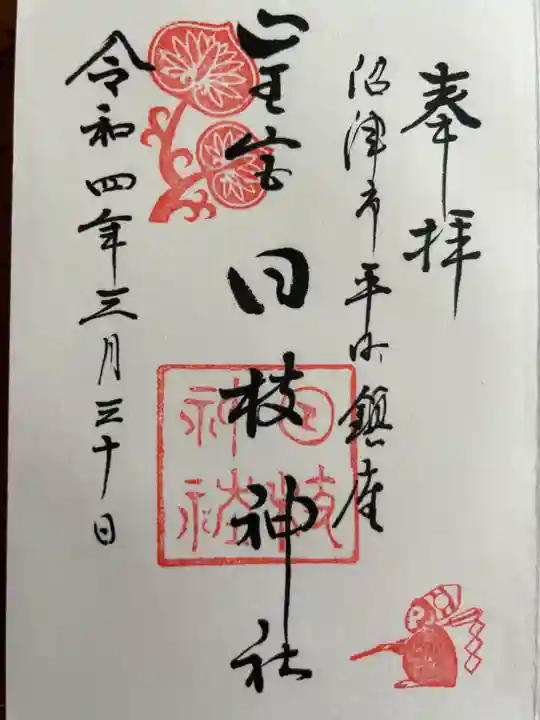 奉拝
沼津市平町鎮座
山王宮
日枝神社
日枝
神社
令和四年三月三十日